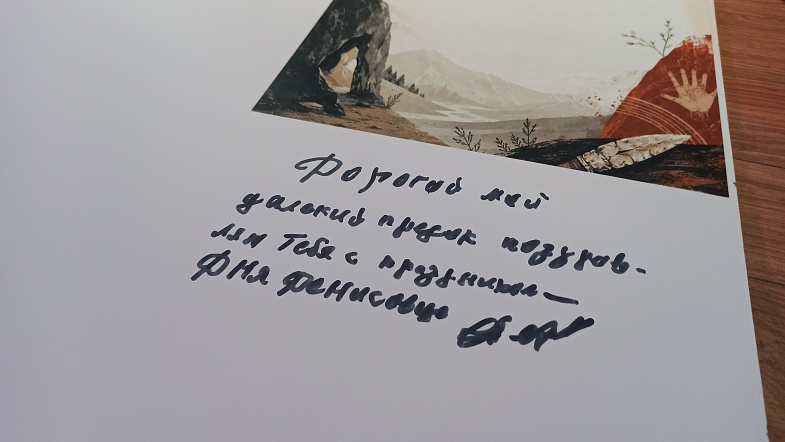 Дорогой мой
далекий предок поздрав-
ляю Тебя с праздником —
Дня Денисовца